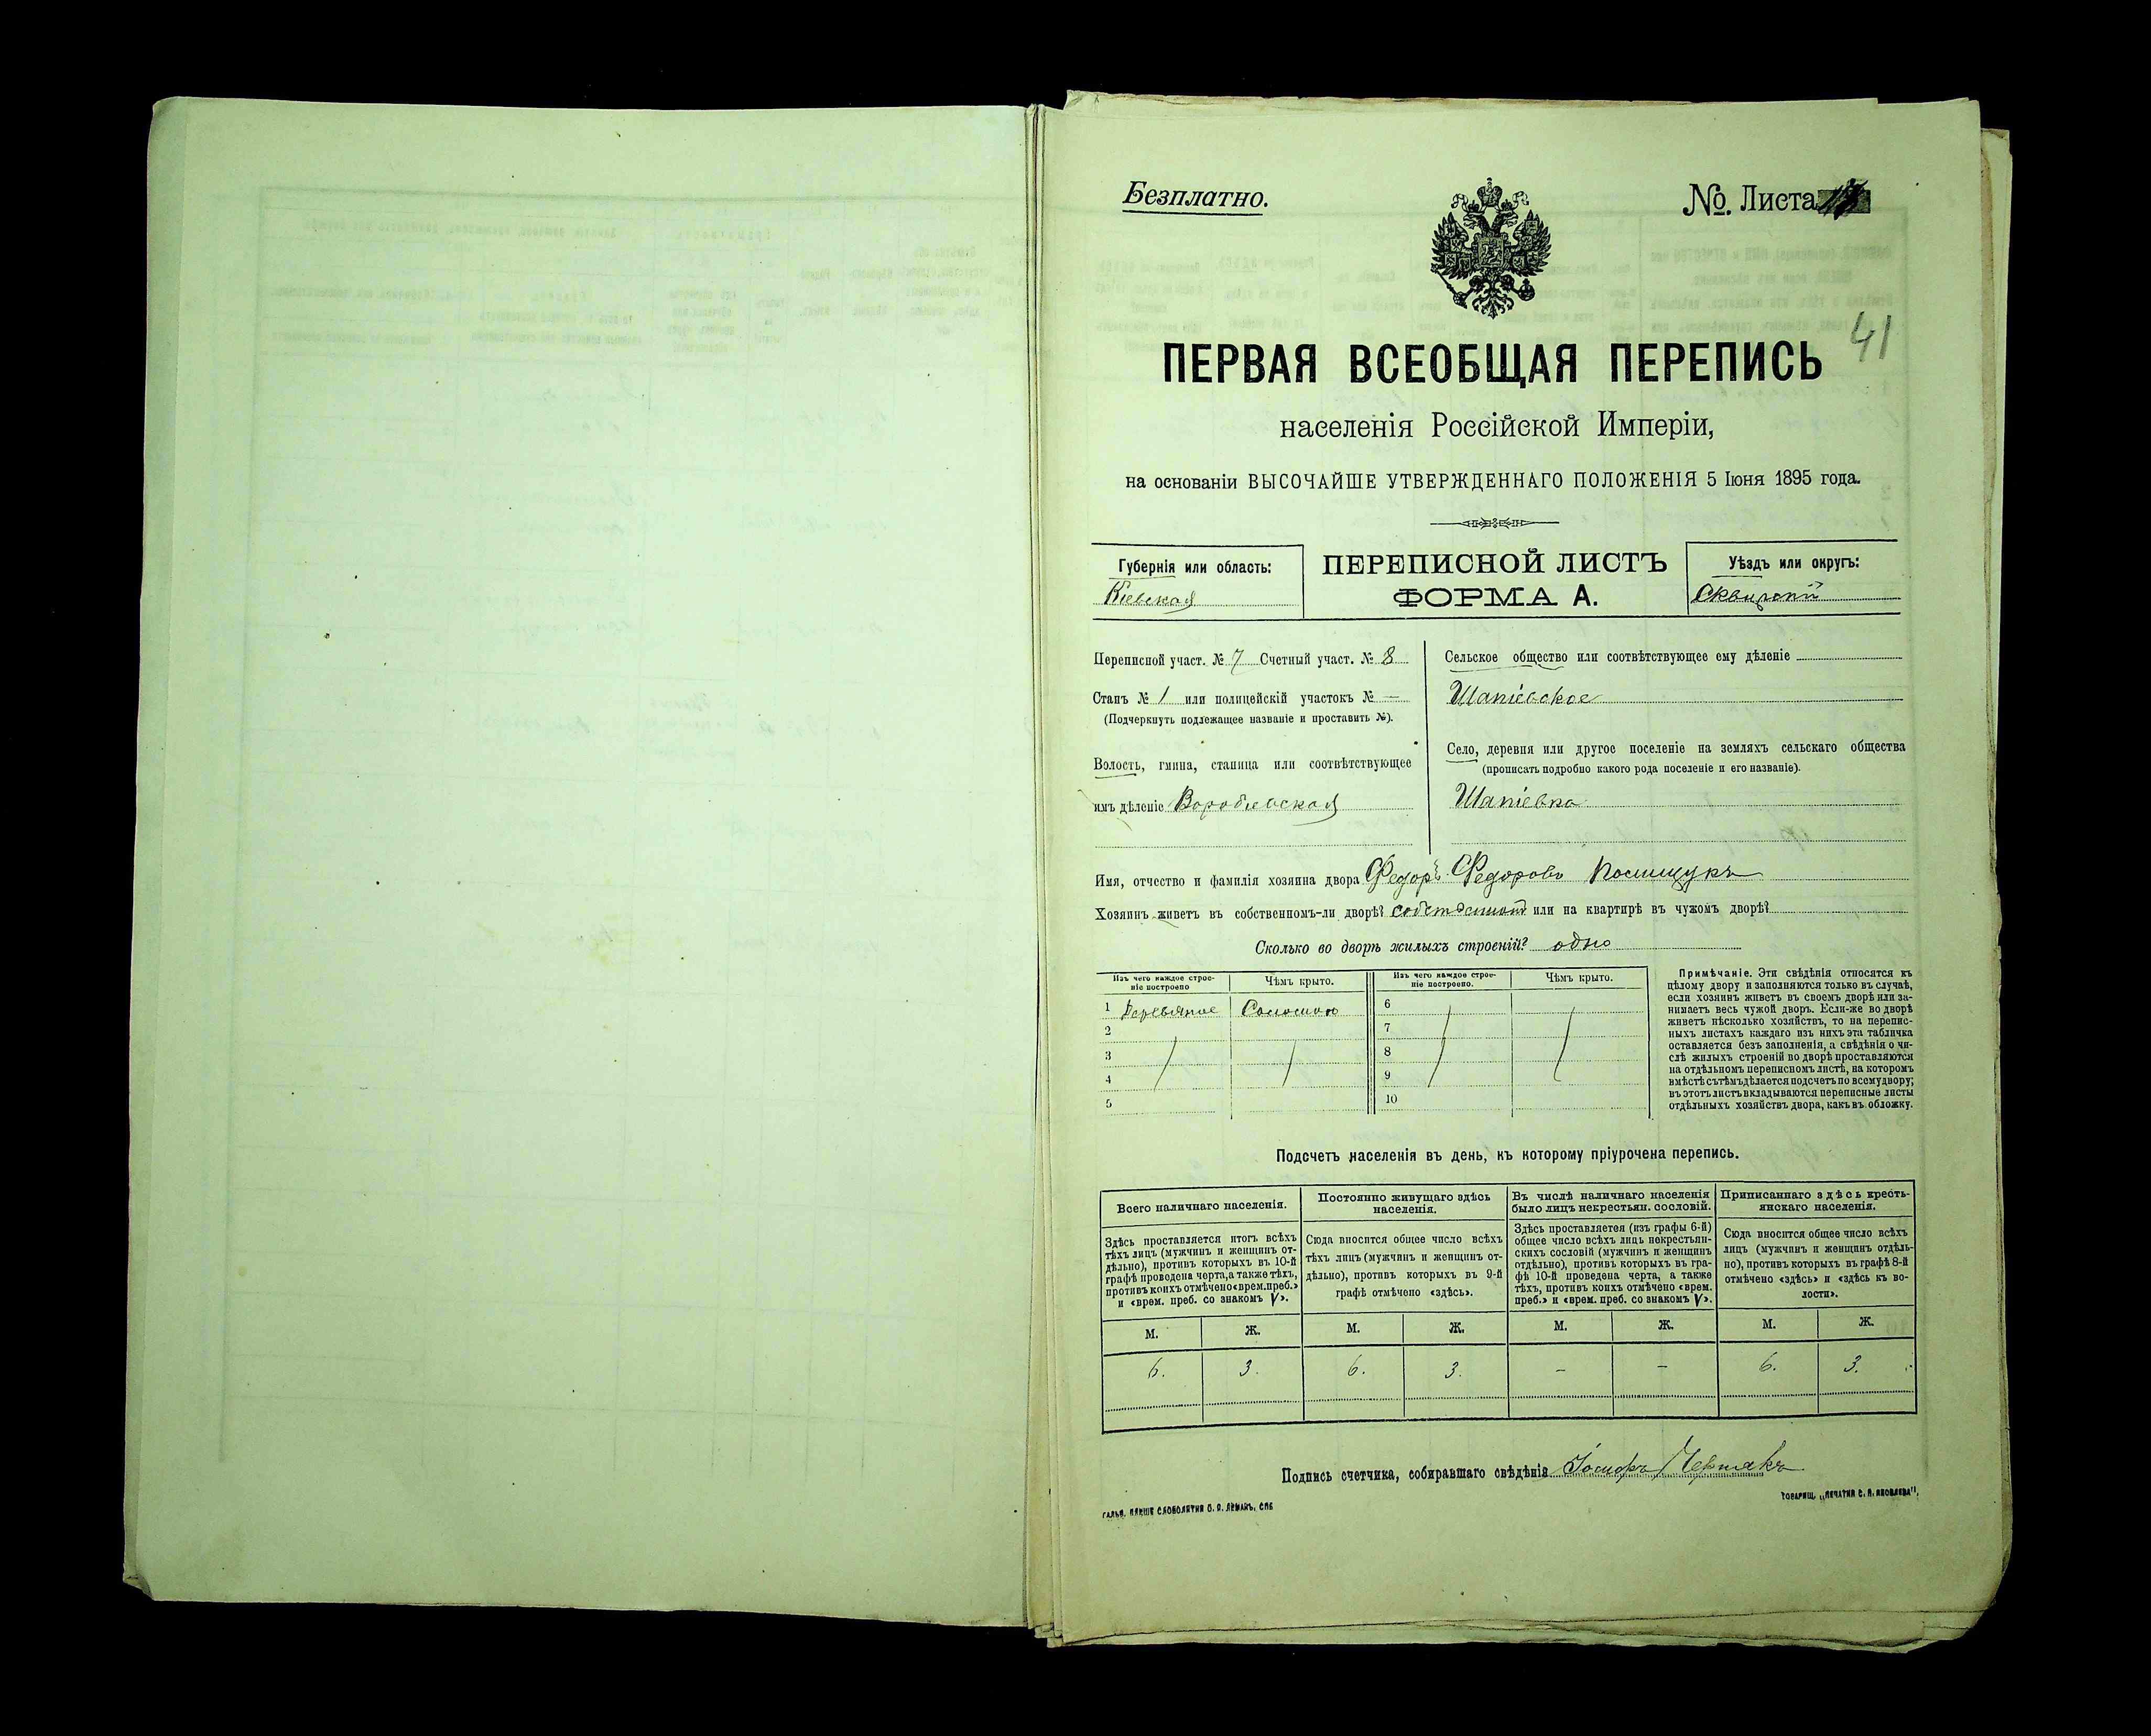 Безплатно.
№ Листа
41
ПЕРВАЯ ВСЕОБЩАЯ ПЕРЕПИСЬ
населенія Россійской Имперіи,
на основаніи ВЫСОЧАЙШЕ УТВЕРЖДЕННАГО ПОЛОЖЕНІЯ 5 Іюня 1895 года.
Губернія или область:
Кіевская
ПЕРЕПИСНОЙ ЛИСТЪ
ФОРМА А.
Уѣздъ или округъ:
Сквирскій
Переписной участ. № 7 Счетный участ. № 8
Станъ № 1 или полицейскій участокъ № —
(Подчеркнуть подлежащее названіе и проставить №).
Волость, гмина, станица или соотвѣтствующее
имъ дѣленіе Воробіевская
Сельское общество или соотвѣтствующее ему дѣленіе
Шапіевское
Село, деревня или другое поселеніе на земляхъ сельскаго общества
(прописать подробно какого рода поселеніе и его названіе).
Шапіевка
Имя, отчество и фамилія хозяина двора Федоръ Федоровъ
Хозяинъ живетъ въ собственномъ-ли дворѣ? или на квартирѣ въ чужомъ дворѣ?
Сколько во дворѣ жилыхъ строеній? одно
Изъ чего каждое строе-
ніе построено
Чѣмъ крыто.
Изъ чего каждое строе-
ніе построено.
Чѣмъ крыто.
1 Деревяное Соломою
2
3
4
5
6
7
8
9
10
Примѣчаніе. Эти свѣдѣнія относятся къ
цѣлому двору и заполняются только въ случаѣ,
если хозяинъ живетъ въ своемъ дворѣ или за-
нимаетъ весь чужой дворъ. Если-же во дворѣ
живетъ нѣсколько хозяйствъ, то на перепис-
ныхъ листахъ каждаго изъ нихъ эта табличка
оставляется безъ заполненія, а свѣдѣнія о чи-
слѣ жилыхъ строеній во дворѣ проставляются
на отдѣльномъ переписномъ листѣ, на которомъ
вмѣстѣ съ тѣмъ дѣлается подсчетъ по всему двору;
въ этотъ листъ вкладываются переписные листы
отдѣльныхъ хозяйствъ двора, какъ въ обложку.
Подсчетъ населенія въ день, къ которому пріурочена перепись.
Всего наличнаго населенія.
Здѣсь проставляется итогъ всѣхъ
тѣхъ лицъ (мужчинъ и женщинъ от-
дѣльно), противъ которыхъ въ 10-й
графѣ проведена черта, а также тѣхъ,
противъ коихъ отмѣчено «врем. преб.»
и «врем. преб. со знакомъ V».
Постоянно живущаго здѣсь
населенія.
Сюда вносится общее число всѣхъ
тѣхъ лицъ (мужчинъ и женщинъ от-
дѣльно), противъ которыхъ въ 9-й
графѣ отмѣчено «здѣсь».
Въ числѣ наличнаго населенія
было лицъ некрестьян. сословій.
Здѣсь проставляется (изъ графы 6-й)
общее число всѣхъ лицъ некрестьян-
скихъ сословій (мужчинъ и женщинъ
отдѣльно), противъ которыхъ въ гра-
фѣ 10-й проведена черта, а также
тѣхъ, противъ коихъ отмѣчено «врем.
преб.» и «врем. преб. со знакомъ V».
Приписаннаго здѣсь кресть-
янскаго населенія.
Сюда вносится общее число всѣхъ
лицъ (мужчинъ и женщинъ отдѣль-
но), противъ которыхъ въ графѣ 8-й
отмѣчено «здѣсь» и «здѣсь къ во-
лости».
М. Ж. М. Ж. М. Ж. М. Ж.
6. 3. 6. 3. – – 6. 3.
Подпись счетчика, собиравшаго свѣдѣнія Іосифъ
ТОВАРИЩ. „ПЕЧАТНЯ С. П. ЯКОВЛЕВА".